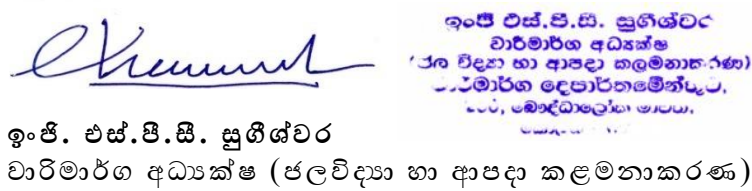 ඉංජි එස්.පී.සී. සුගීශ්වර
වාරිමාර්ග අධ්‍යක්ෂ
(ජල විද්‍යා හා ආපදා කලමනාකරණ)
වාරිමාර්ග දෙපාර්තමේන්තුව,
බෞද්ධාලෝක මාවත,
ඉංජි. එස්.පී.සී. සුගීශ්වර
වාරිමාර්ග අධ්‍යක්ෂ (ජලවිද්‍යා හා ආපදා කළමනාකරණ)